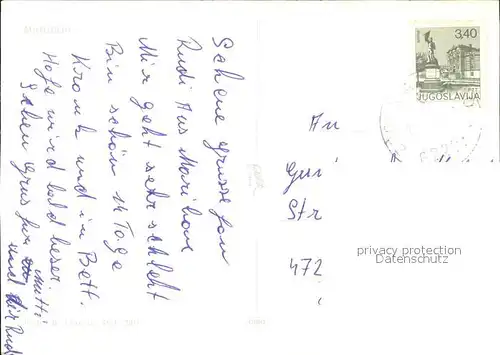 Schene grusse fon
Rudi Aus Maribore
Mir geht sehr schleht
Bin schön 14 Tage
Kronk und in Bett.
Hofe wird bald beser.
Schen Grus fur Mutti
und dir Rudi
3,40
JUGOSLAVIJA
An
Str
472
privacy protection
Datenschutz